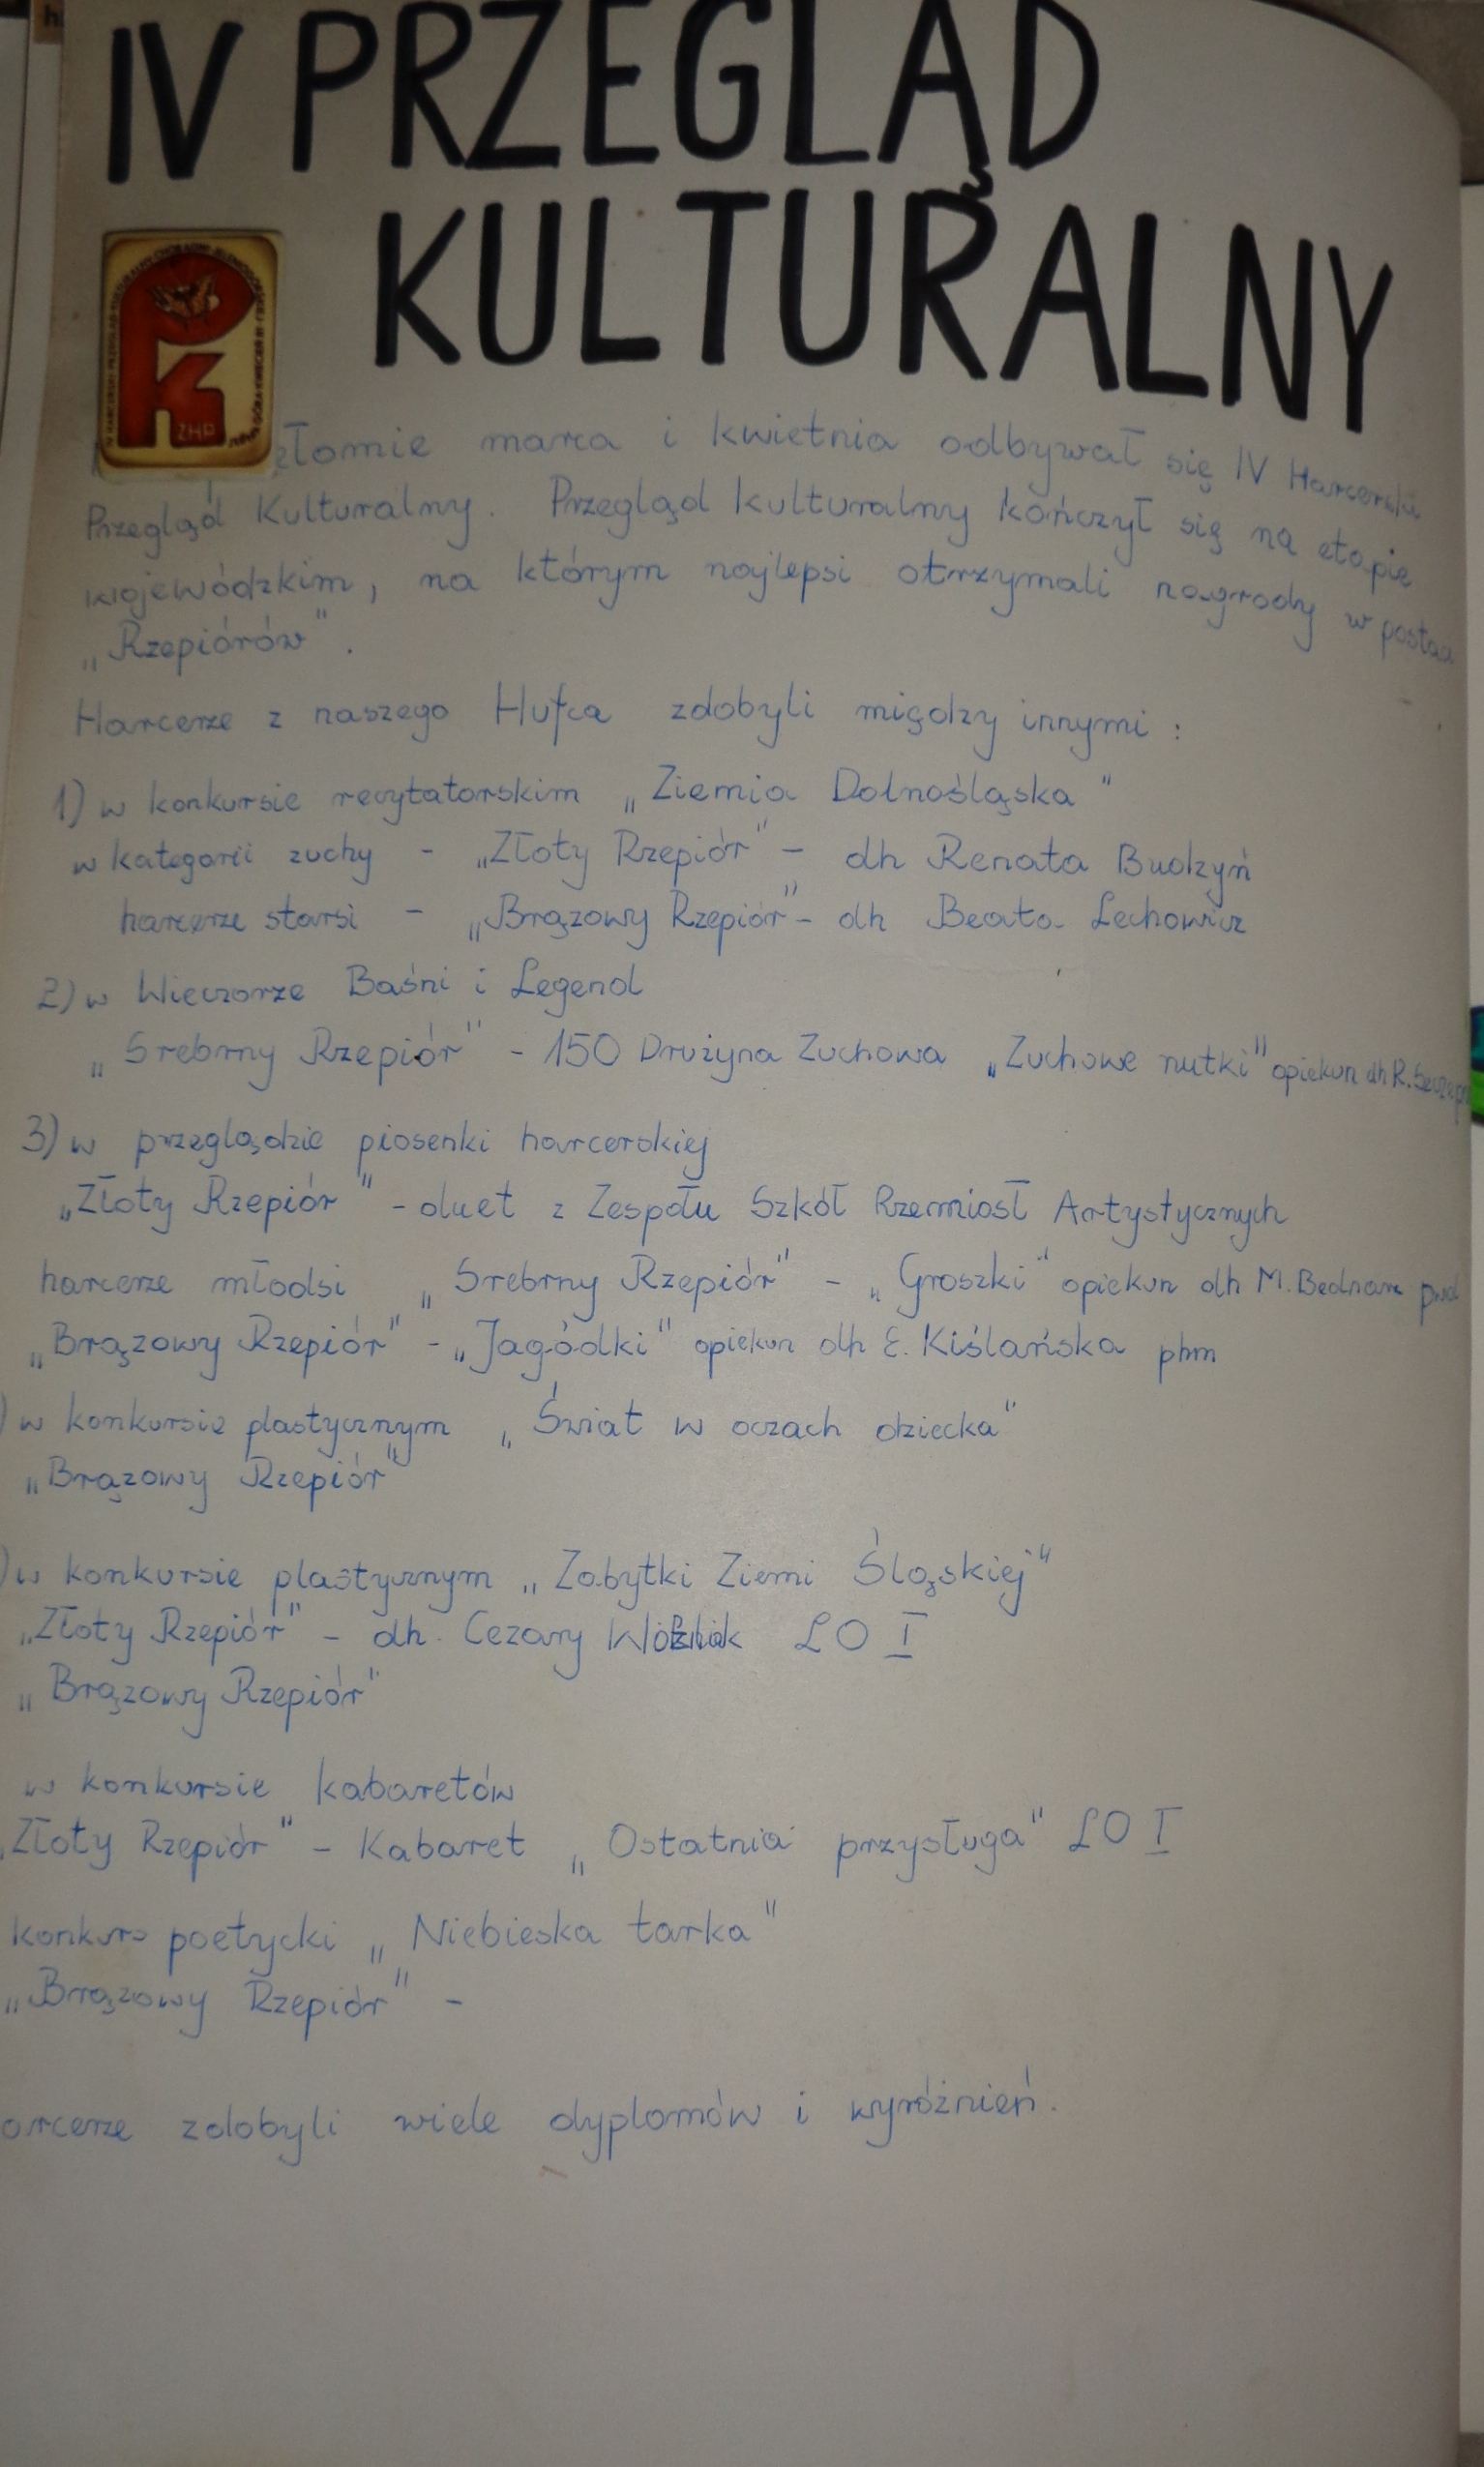 IV PRZEGLĄD
KULTURALNY
PK
ZHP
marca i kwietnia odbywał się IV Harcerski
Przegląd Kulturalny. Przegląd kulturalny kończył się na etapie
wojewódzkim, na którym najlepsi otrzymali nagrody w postaci
„Rzepiórów".
Harcerze z naszego Hufca zdobyli między innymi :
1) w konkursie recytatorskim „Ziemia Dolnośląska"
w kategorii zuchy - „Złoty Rzepiór" - dh Renata Budzyń
harcerze starsi - „Brązowy Rzepiór" - dh Beata Lechowicz
2) w Wieczorze Baśni i Legend
„Srebrny Rzepiór" - 150 Drużyna Zuchowa „Zuchowe nutki" opiekun dh R.
3) w przeglądzie piosenki harcerskiej
„Złoty Rzepiór" - duet z Zespołu Szkół Rzemiosł Artystycznych
harcerze młodsi „Srebrny Rzepiór" - „Groszki" opiekun dh M. Bednarz pwd
„Brązowy Rzepiór" - „Jagódki" opiekun dh E. Kiślańska phm
) w konkursie plastycznym „Świat w oczach dziecka"
„Brązowy Rzepiór"
) w konkursie plastycznym „Zabytki Ziemi Śląskiej"
„Złoty Rzepiór" - dh. Cezary LO I
„Brązowy Rzepiór"
w konkursie kabaretów
„Złoty Rzepiór" - Kabaret „Ostatnia przysługa" LO I
konkurs poetycki „Niebieska tarka"
„Brązowy Rzepiór" -
arcerze zdobyli wiele dyplomów i wyróżnień.